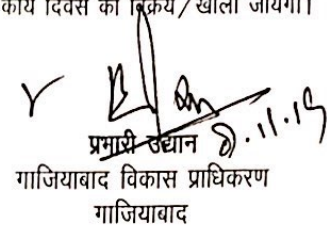 कीय दिवस को विक्रय/खोला जायेगा।
प्रभारी उद्यान
गाजियाबाद विकास प्राधिकरण
गाजियाबाद